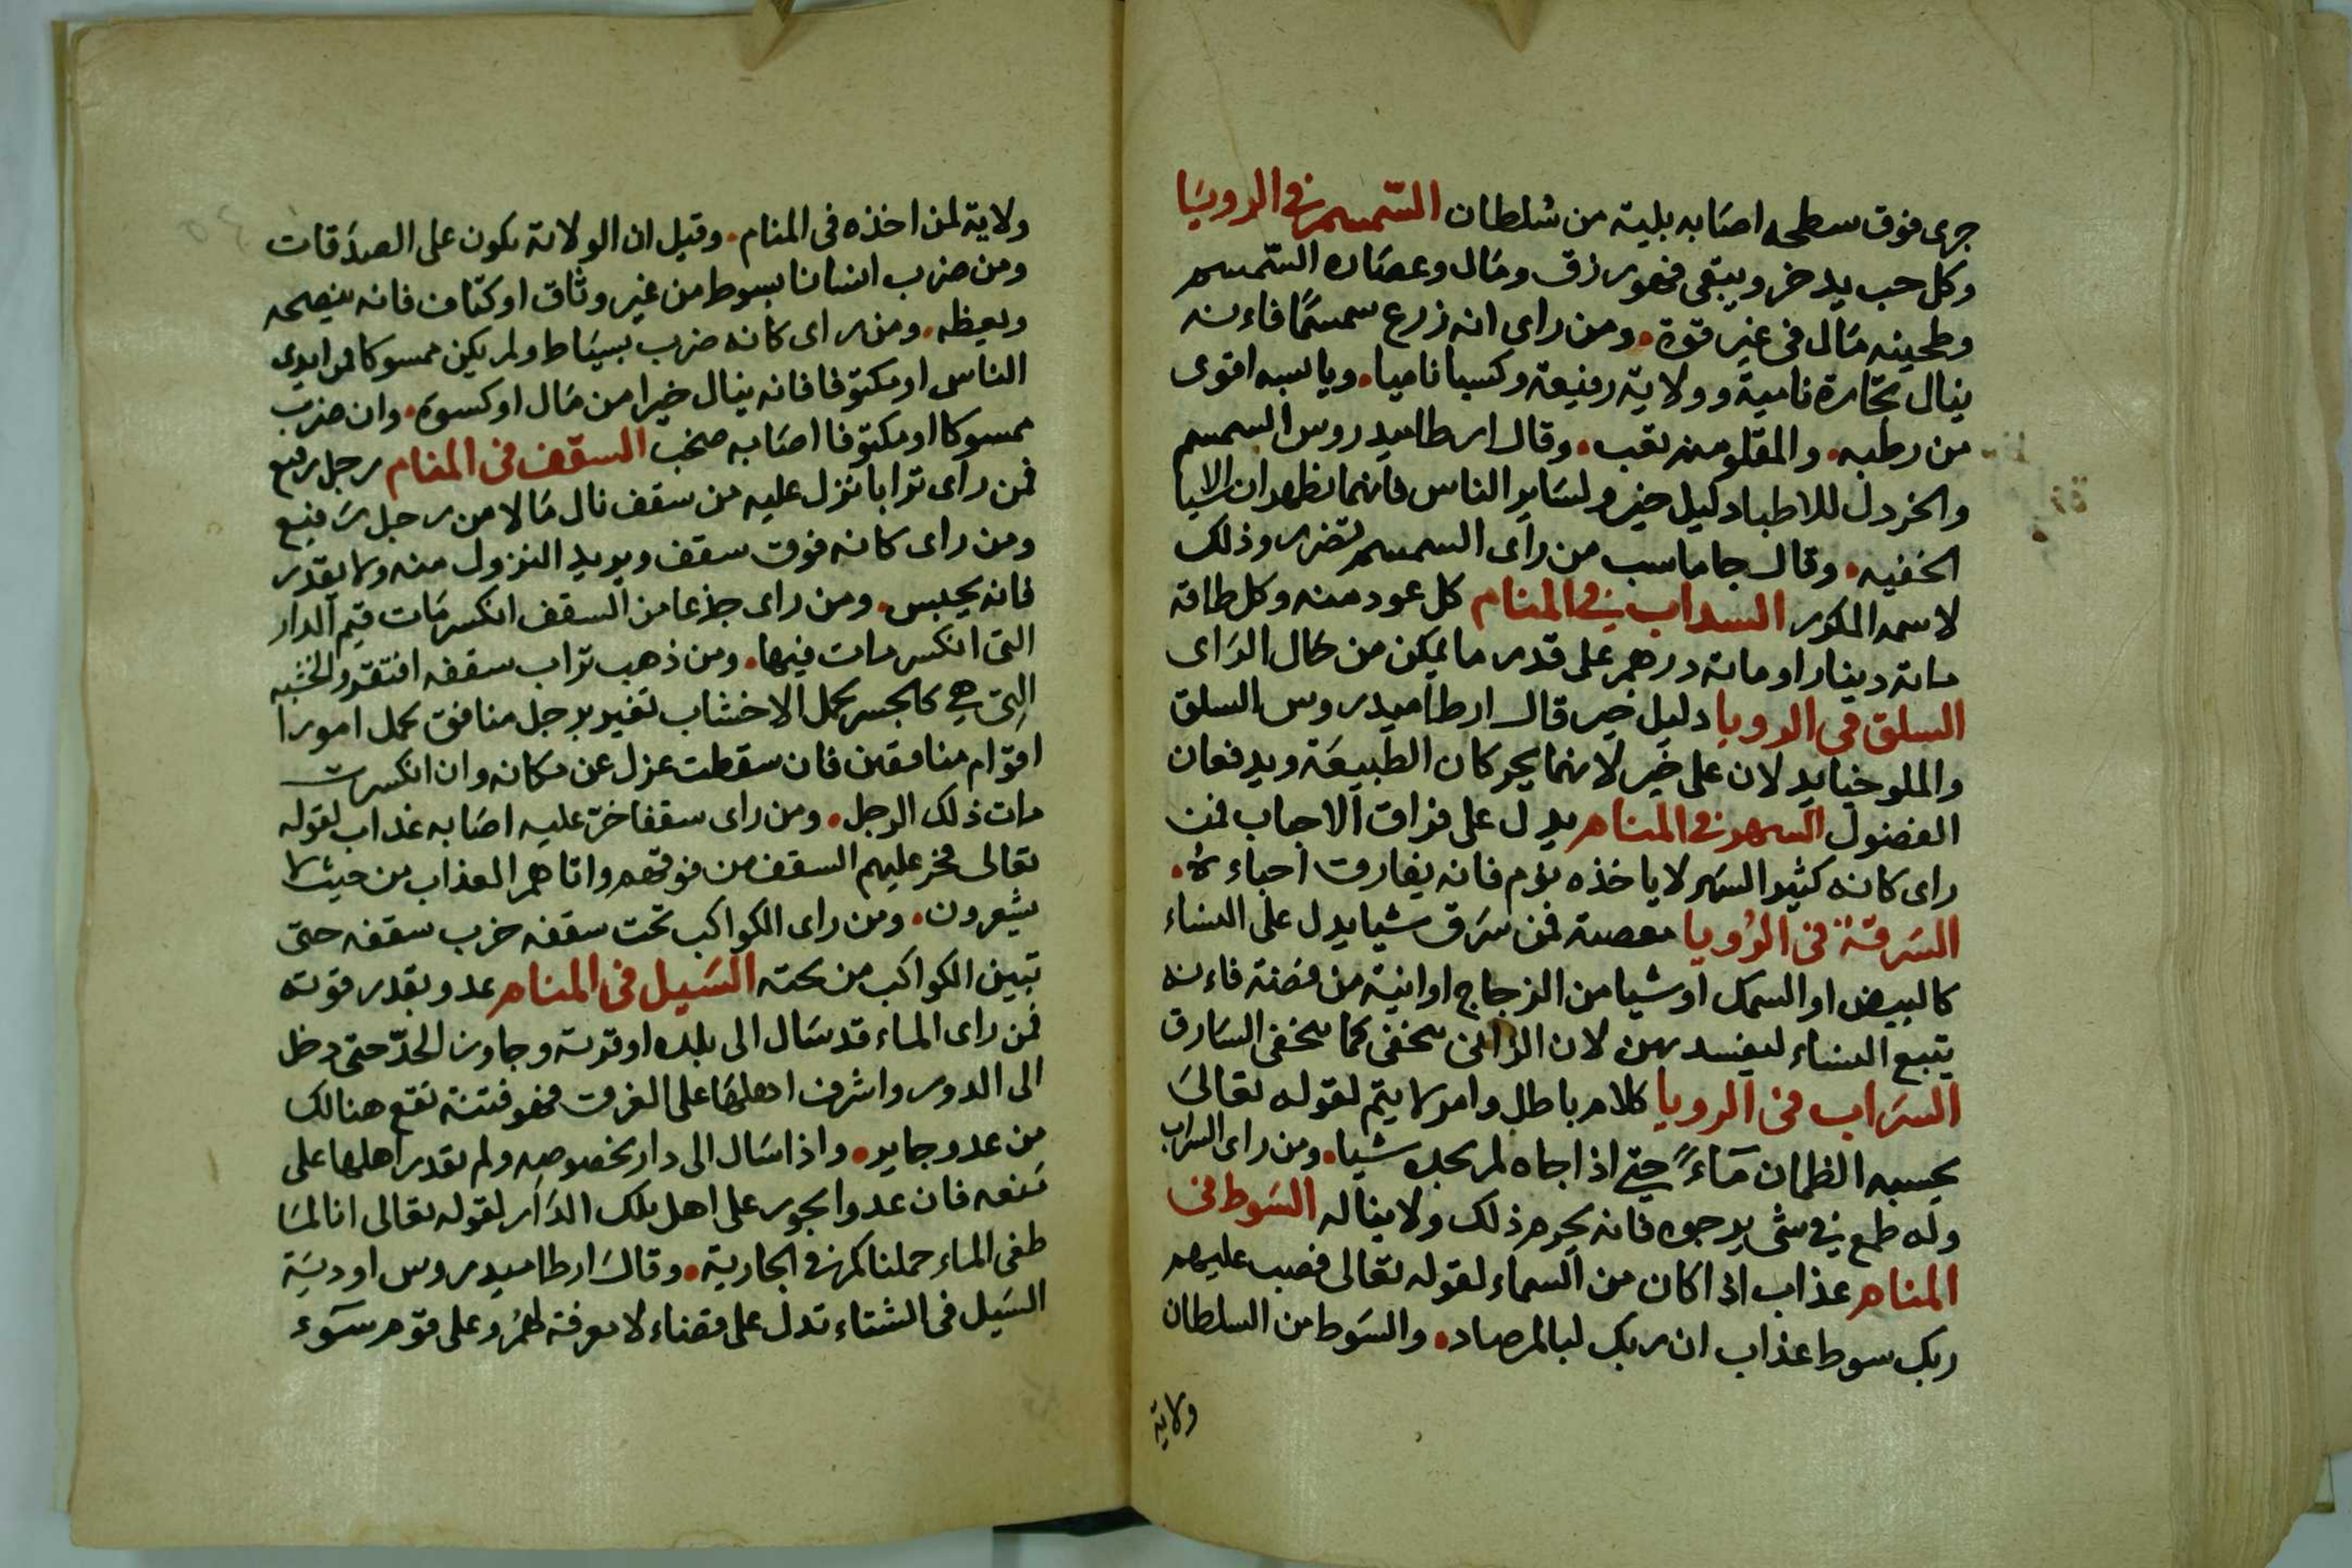 جرى فوق سطحه اصابه بلية من سلطان السمسم في الرويا
وكل حب يدخر ويبقى فهو رزق ومال وعصاره السمسم
وطحينه مال في غير قوة. ومن راى انه زرع سمسمًا فاءنه
ينال تجارة نامية وولاية رفيعة وكسبا ناميا. ويابسه اقوى
من رطبه. والمقلو منه تعب. وقال ارطاميدروس السمسم
والخردل للاطباء دليل خير ولساير الناس فانهما يظهران الاشيا
الخفيه. وقال جاماسب من راى السمسم تضرر وذلك
لاسمه المكور السداب في المنام كل عود منه وكل طاقة
ماية دينار او ماية درهم على قدر ما يمكن من حال الراى
السلق في الرويا دليل خير قال ارطاميدروس السلق
والملوخيا يدلان على خير لانهما يحركان الطبيعة ويدفعان
الفضول السهر في المنام يدل على فراق الاحباب فمن
راى كانه كثير السهر لا ياخذه نوم فانه يفارق احباءه.
السرقة في الرويا معصية فمن سرق شيا يدل على النساء
كالبيض او السمك او شيا من الزجاج او انية من فضة فاءنه
يتبع النساء ليفسد بهن لان الزانى يتخفى كما يتخفى السارق
السراب في الرويا كلام باطل وامر لا يتم لقوله تعالى
يحسبه الظمان مآءً حتى اذا جاه لم يجده شيا. ومن راى السراب
وله طمع في شى يرجوه فانه يحرم ذلك ولا يناله السوط في
المنام عذاب اذا كان من السماء لقوله تعالى فصب عليهم
ربك سوط عذاب ان ربك لبالمرصاد. والسوط من السلطان
ولاية
ولاية لمن اخذه في المنام. وقيل ان الولاية تكون على الصدقات
ومن ضرب انسانا بسوط من غير وثاق او كتاف فانه ينصحه
ويعظه. ومن راى كانه ضرب بسياط ولم يكن ممسوكا من ايدى
الناس او مكتوفا فانه ينال خيرا من مال او كسوة. وان ضرب
ممسوكا او مكتوفا اصابه صخب السقف في المنام رجل رفيع
فمن راى ترابا نزل عليه من سقف نال مالا من رجل رفيع
ومن راى كانه فوق سقف ويريد النزول منه ولا يقدر
فانه يحبس. ومن راى جذعا من السقف انكسر مات قيم الدار
التى انكسر مات فيها. ومن ذهب تراب سقفه افتقر والخشبه
التى هي كالجسر تحمل الاخشاب تفسر برجل منافق يحمل امورا
اقوام منافقين فان سقطت عزل عن مكانه وان انكسرت
مات ذلك الرجل. ومن راى سقفا خر عليه اصابه عذاب لقوله
تعالى فخر عليهم السقف من فوقهم واتاهم العذاب من حيث لا
يشعرون. ومن راى الكواكب تحت سقفه خرب سقفه حتى
تبين الكواكب من تحته السيل في المنام عدو بقدر قوته
فمن راى الماء قد سال الى بلده او قرية وجاوز الحدّ حتى دخل
الى الدور واشرف اهلها على الغرق فهو فتنة تقع هنالك
من عدو جاير. واذا سال الى دار بخصوصه ولم يقدر اهلها على
منعه فان عدوا يجور على اهل تلك الدار لقوله تعالى انا لما
طغى الماء حملناكم في الجارية. وقال ارطاميدروس اودية
السيل في الشتاء تدل على قضاء لا معرفة لهم وعلى قوم سوء